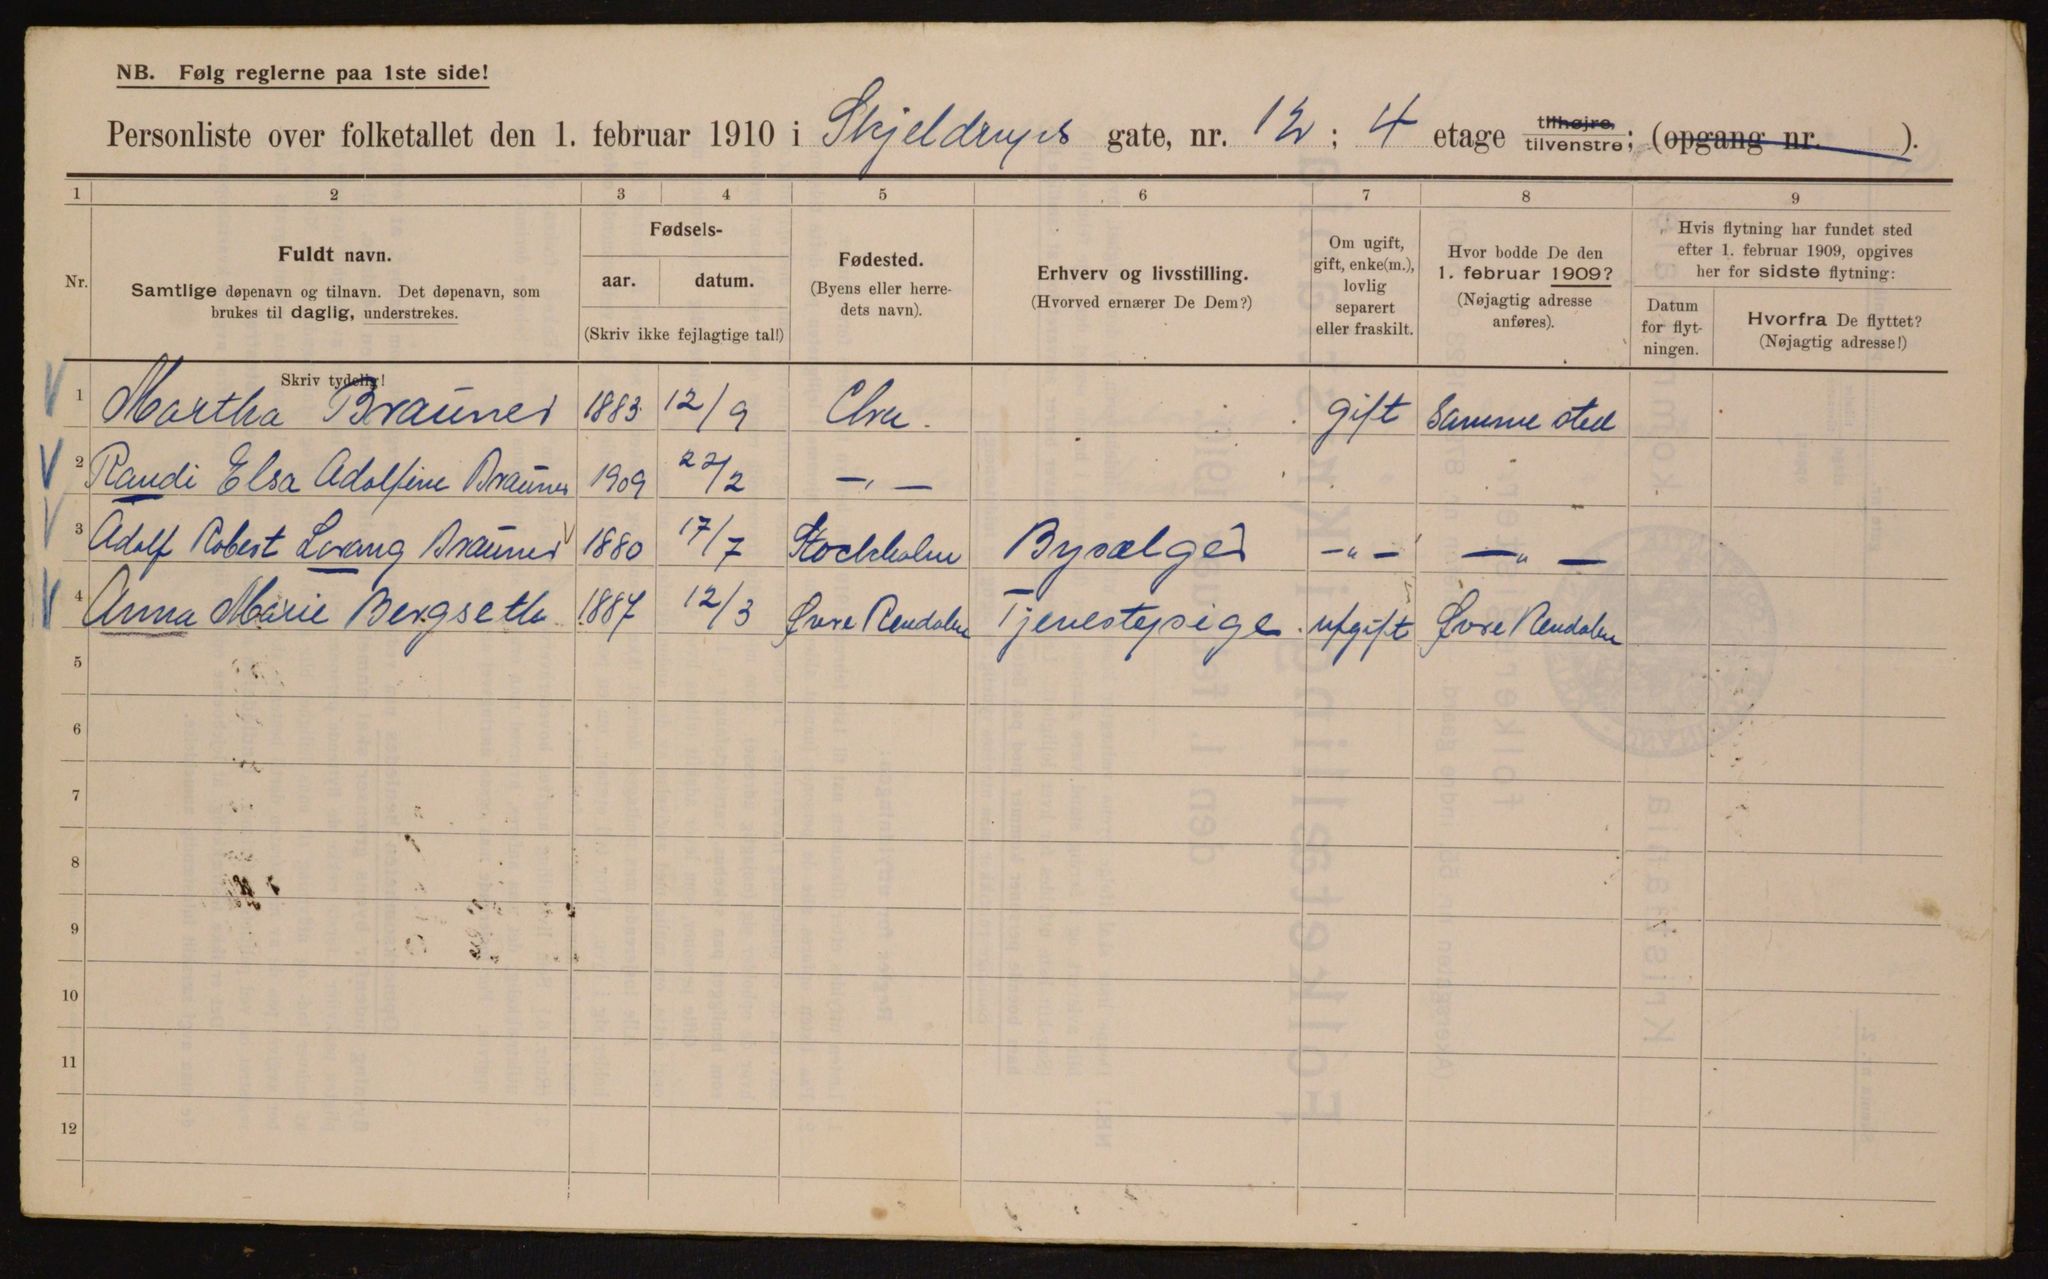 NB. Følg reglerne paa 1ste side!
Personliste over folketallet den 1. februar 1910 i Skjeldrups gate, nr. 12; 4 etage tilhøjre, tilvenstre; (opgang nr. ).
1 2 3 4 5 6 7 8 9
Nr.
Fuldt navn.
Samtlige døpenavn og tilnavn. Det døpenavn, som
brukes til daglig, understrekes.
Skriv tydelig!
Fødsels-
aar. datum.
(Skriv ikke fejlagtige tal!)
Fødested.
(Byens eller herre-
dets navn).
Erhverv og livsstilling.
(Hvorved ernærer De Dem?)
Om ugift,
gift, enke(m.),
lovlig
separert
eller fraskilt.
Hvor bodde De den
1. februar 1909?
(Nøjagtig adresse
anføres).
Hvis flytning har fundet sted
efter 1. februar 1909, opgives
her for sidste flytning:
Datum
for flyt-
ningen.
Hvorfra De flyttet?
(Nøjagtig adresse!)
1 Martha Brauner 1883 12/9 Chra. gift samme sted
2 Randi Elsa Adolfine Brauner 1909 22/2 —„—
3 Adolf Robert Lorang Brauner 1880 17/7 Stockholm Bysælger —„— —„—
4 Anna Marie Bergseth 1887 12/3 Øvre Rendalen Tjenestepige ugift Øvre Rendalen
5
6
7
8
9
10
11
12